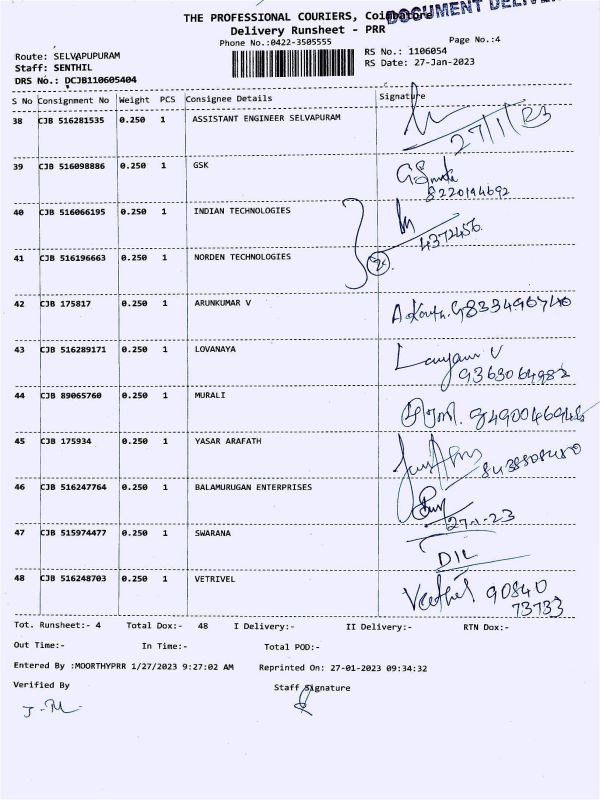 DOCUMENT DELIVE
THE PROFESSIONAL COURIERS, Coimbatore
Delivery Runsheet - PRR
Phone No.:0422-3505555
Page No.:4
Route: SELVAPUPURAM
RS No.: 1106054
Staff: SENTHIL
RS Date: 27-Jan-2023
DRS No.: DCJB110605404
S No Consignment No Weight PCS Consignee Details Signature
38 CJB 516281535 0.250 1 ASSISTANT ENGINEER SELVAPURAM
27/1/23
39 CJB 516098886 0.250 1 GSK
8220194692
40 CJB 516066195 0.250 1 INDIAN TECHNOLOGIES
4372456
41 CJB 516196663 0.250 1 NORDEN TECHNOLOGIES
42 CJB 175817 0.250 1 ARUNKUMAR V
43 CJB 516289171 0.250 1 LOVANAYA
9363064982
44 CJB 89065760 0.250 1 MURALI
45 CJB 175934 0.250 1 YASAR ARAFATH
46 CJB 516247764 0.250 1 BALAMURUGAN ENTERPRISES
27-1-23
47 CJB 515974477 0.250 1 SWARANA
DIL
48 CJB 516248703 0.250 1 VETRIVEL
90840
73733
Tot. Runsheet:- 4 Total Dox:- 48 I Delivery:- II Delivery:- RTN Dox:-
Out Time:- In Time:- Total POD:-
Entered By :MOORTHYPRR 1/27/2023 9:27:02 AM Reprinted On: 27-01-2023 09:34:32
Verified By Staff Signature